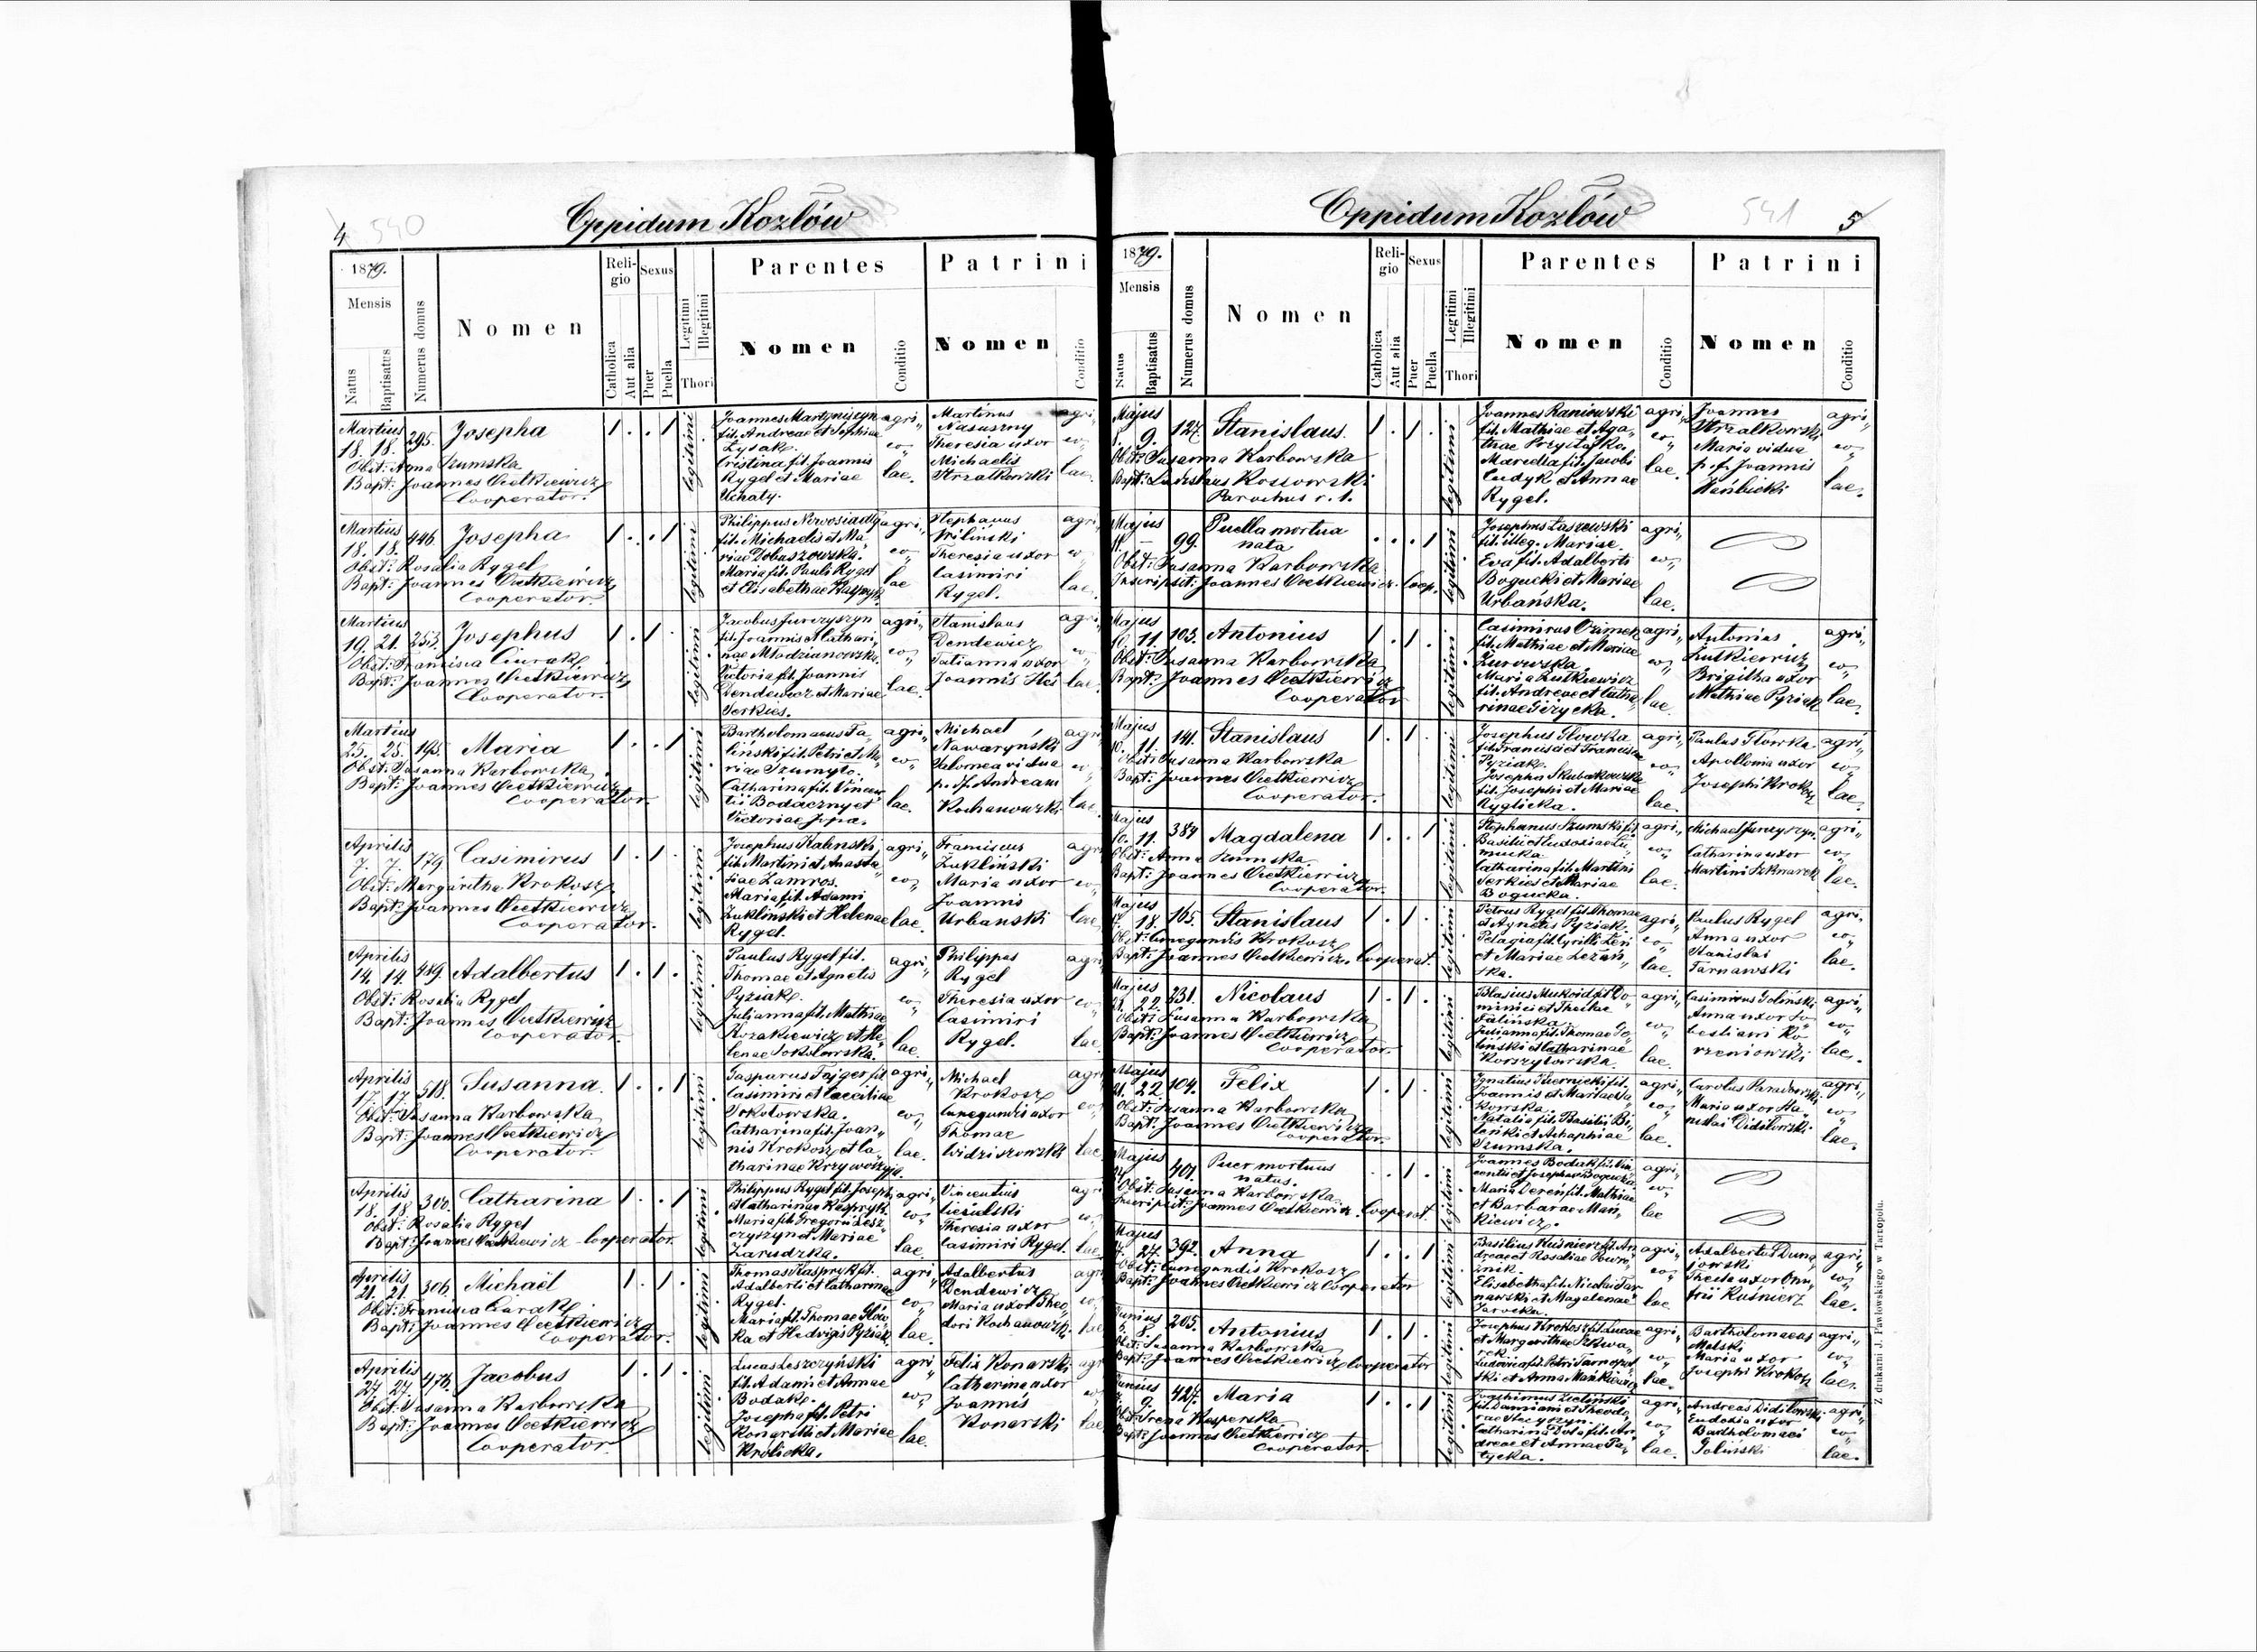 4
540
Oppidum Kozłów
1879.
Mensis
Natus
Baptisatus
Numerus domus
Nomen
Religio
Catholica
Aut alia
Sexus
Puer
Puella
Legitimi
Illegitimi
Thori
Parentes
Nomen
Conditio
Patrini
Nomen
Conditio
Martius
18. 18. 295. Josepha 1 . . 1 legitimi
Obst: Anna Szumska
Bapt: Joannes Cietkiewicz
Cooperator.
Joannes Martyniszyn
fil. Andreae et Sophiae
Łysak.
Cristina fil. Joannis
Rygel et Mariae
Uchaty.
agri„
co„
lae.
Martinus
Nasuszny
Theresia uxor
Michaelis
Strzałkowski
agri„
co„
lae.
Martius
18. 18. 446. Josepha 1 . . 1 legitimi
Obst: Rosalia Rygel
Bapt: Joannes Cietkiewicz
Cooperator.
Philippus Nowosiadły
fil. Michaelis et Ma„
riae Dobaszowska.
Maria fil. Pauli Rygel
et Elisabethae Kaspryk.
agri„
co„
lae
Stephanus
Wiliński
Theresia uxor
Casimiri
Rygel.
agri„
co„
lae.
Martius
19. 21. 253. Josephus 1 . 1 . legitimi
Obst: Francisca Ciurak
Bapt: Joannes Cietkiewicz
Cooperator.
Jacobus Jurczyszyn
fil. Joannis et Cathari„
nae Młodzianowska.
Victoria fil. Joannis
Dendewicz et Mariae
Serkies.
agri„
co„
lae.
Stanislaus
Dendewicz
Tatianna uxor
Joannis
agri„
co„
lae.
Martius
25. 25. 195. Maria 1 . . 1 legitimi
Obst: Susanna Karbowska
Bapt: Joannes Cietkiewicz
Cooperator.
Bartholomaeus Fa„
liński fil. Petri et Ma„
riae Szumyło.
Catharina fil. Vincen„
tii Bodaczny et
Victoriae
agri„
co„
lae.
Michael
Nawaryński
Salomea vidua
p. def. Andream
Kochanowski
agri
co„
lae.
Aprilis
7. 7. 179. Casimirus 1 . 1 . legitimi
Obst: Margaritha Krokosz
Bapt: Joannes Cietkiewicz
Cooperator.
Josephus Kaliński
fil. Martini et Anasta„
siae Zamros.
Maria fil. Adami
Żukliński et Helenae
Rygel.
agri„
co„
lae.
Franciscus
Żukliński
Maria uxor
Joannis
Urbanski
agri
co„
lae.
Aprilis
14. 14. 489. Adalbertus 1 . 1 . legitimi
Obst: Rosalia Rygel
Bapt: Joannes Cietkiewicz
Cooperator.
Paulus Rygel fil.
Thomae et Agnetis
Pyziak.
Julianna fil. Mathiae
Kozakiewicz et He„
lenae Sokołowska.
agri„
co„
lae.
Philippus
Rygel
Theresia uxor
Casimiri
Rygel.
agri
co„
lae.
Aprilis
17. 17. 518. Susanna 1 . . 1 legitimi
Obst: Susanna Karbowska
Bapt: Joannes Cietkiewicz
Cooperator.
Gasparus Fajger fil.
Casimiri et Caeciliae
Sokołowska.
Catharina fil. Joan„
nis Krokosz et Ca„
tharinae
agri„
co„
lae.
Michael
Krokosz
Cunegundis uxor
Thomae
Widziszowski
agri
co„
lae
Aprilis
18. 18. 300. Catharina 1 . . 1 legitimi
Obst: Rosalia Rygel
Bapt: Joannes Cietkiewicz - Cooperator
Philippus Rygel fil. Josephi
et Catharinae Kaspryk.
Maria fil. Gregorii Lesz„
czyszyn et Mariae
Zarudzka.
agri„
co„
lae.
Vincentius
Ciesielski
Theresia uxor
Casimiri Rygel
agri
co„
lae
Aprilis
21. 21. 306. Michaël 1 . 1 . legitimi
Obst: Francisca Ciurak
Bapt: Joannes Cietkiewicz
Cooperator.
Thomas Kaspryk fil.
Adalberti et Catharinae
Rygel.
Maria fil. Thomae Głów„
ka et Hedvigis Pyziak.
agri„
co„
lae.
Adalbertus
Dendewicz
Maria uxor Theo„
dori Kochanowski.
agri
co„
lae
Aprilis
27. 27. 476. Jacobus 1 . 1 . legitimi
Obst: Susanna Karbowska
Bapt: Joannes Cietkiewicz
Cooperator
Lucas Leszczyński
fil. Adami et Annae
Bodak.
Josepha fil. Petri
Konarski et Mariae
Królicka.
agri„
co„
lae.
Felix Konarski
Catharina uxor
Joannis
Konarski
agr
co„
lae
Oppidum Kozłów
541
5
1879.
Mensis
Natus
Baptisatus
Numerus domus
Nomen
Religio
Catholica
Aut alia
Sexus
Puer
Puella
Legitimi
Illegitimi
Thori
Parentes
Nomen
Conditio
Patrini
Nomen
Conditio
Majus
8. 9. 127. Stanislaus. 1 . 1 . legitimi
Obst: Susanna Karbowska
Bapt: Ladislaus Kossowski
Parochus r. l.
Joannes Raniowski
fil. Mathiae et Aga„
thae Przystajko.
Marcella fil. Jacobi
Cudyk et Annae
Rygel.
agri„
co„
lae.
Joannes
Strzałkowski
Maria vidua
p. def. Joannis
agri„
co„
lae.
Majus
11. – 99. Puella mortua
nata . . . 1 legitimi
Obst: Susanna Karbowska
Inscripsit: Joannes Cietkiewicz. Coop.
Josephus Łaszewski
fil. illeg. Mariae.
Eva fil. Adalberti
Bogucki et Mariae
Urbańska.
agri„
co„
lae.
Majus
10. 11. 103. Antonius 1 . 1 . legitimi
Obst: Susanna Karbowska
Bapt: Joannes Cietkiewicz
Cooperator
Casimirus Ozimek
fil. Mathiae et Mariae
Żurowska.
Maria Lutkiewicz
fil. Andreae et Catha„
rinae Giżycka.
agri„
co„
lae
Antonius
Lutkiewicz
Brigitha uxor
Mathiae Pyziak
agri„
co„
lae.
Majus
10. 11. 141. Stanislaus 1 . 1 . legitimi
Obst: Susanna Karbowska
Bapt: Joannes Cietkiewicz
Cooperator.
Josephus Głowka
fil. Francisci et Franciscae
Pyziak.
Josepha Skubakowska
fil. Josephi et Mariae
Ryglicka.
agri„
co„
lae.
Paulus Głowka
Apollonia uxor
Josephi Krokosz
agri„
co„
lae.
Majus
10. 11. 384 Magdalena 1 . . 1 legitimi
Obst: Anna Szumska
Bapt: Joannes Cietkiewicz
Cooperator.
Stephanus Szumski fil.
Basilii et Eudoxiae
Catharina fil. Martini
Serkies et Mariae
Bogucka.
agri„
co„
lae.
Michael Jurczyszyn
Catharina uxor
Martini
agri„
co„
lae.
Majus
17. 18. 165. Stanislaus 1 . 1 . legitimi
Obst: Cunegundis Krokosz
Bapt: Joannes Cietkiewicz. Cooperat.
Petrus Rygel fil. Thomae
et Agnetis Pyziak.
Pelagia fil. Cyrilli
et Mariae Leżań„
ska.
agri„
co„
lae.
Paulus Rygel
Anna uxor
Stanislai
Tarnawski
agri„
co„
lae.
Majus
22. 22. 231. Nicolaus 1 . 1 . legitimi
Obst: Susanna Karbowska
Bapt: Joannes Cietkiewicz
Cooperator.
Blasius Mukoid fil. Do„
minici et Theclae
Falińska.
Julianna fil. Thomae Go„
liński et Catharinae
Korszyłowska.
agri„
co„
lae.
Casimirus Goliński
Anna uxor Se„
bestiani Ko„
rzeniowski
agri„
co„
lae.
Majus
21. 22. 104. Felix 1 . 1 . legitimi
Obst: Susanna Karbowska
Bapt: Joannes Cietkiewicz
Cooperator.
Ignatius Czernicki fil.
Joannis et Mariae
Natalia fil. Basilii Bi„
lański et Agaphiae
Szumska.
agri„
co„
lae.
Carolus
Maria uxor Sta„
nislai Didiłowski
agri„
co„
lae.
Majus
401. Puer mortuus
natus. . . 1 . legitimi
Obst: Susanna Karbowska.
Inscripsit: Joannes Cietkiewicz. Cooperat.
Joannes Bodak fil. Vin„
centii et Josephae Bogucka
Maria Dereń fil. Mathiae
et Barbarae Mań„
kiewicz.
agri„
co„
lae
Majus
27. 27. 392. Anna 1 . . 1 legitimi
Obst: Cunegundis Krokosz
Bapt: Joannes Cietkiewicz Cooperator
Basilius Kuśnierz fil. An„
dreae et Rosaliae Powro„
źnik.
Elisabetha fil. Nicolai Tar„
nawski et Magalenae
agri„
co„
lae
Adalbertus Duna„
jowski
Thecla uxor Onu„
frii Kuśnierz
agri„
co„
lae.
Junius
8. 205. Antonius 1 . 1 . legitimi
Obst: Susanna Karbowska
Bapt: Joannes Cietkiewicz Cooperator
Josephus Krokosz fil. Lucae
et Margarithae Szkwa„
rek.
Ludovica fil. Petri Tarnopol„
ski et Anna Mańkiewicz
agri„
co„
lae.
Bartholomaeus
Melski
Maria uxor
Josephi Krokosz
agri„
co„
lae.
Junius
9. 427. Maria 1 . . 1 legitimi
Obst: Irena Kasperska
Bapt: Joannes Cietkiewicz
Cooperator.
Joachimus Zieliński
fil. Damiani et Theodo„
rae
Catharina Dola fil. An„
dreae et Annae Pa„
tycka.
agri„
co„
lae.
Andreas Didiłowski
Eudoxia uxor
Bartholomaei
Goliński
agri„
co„
lae.
Z drukarni J. Pawłowskiego w Tarnopolu.